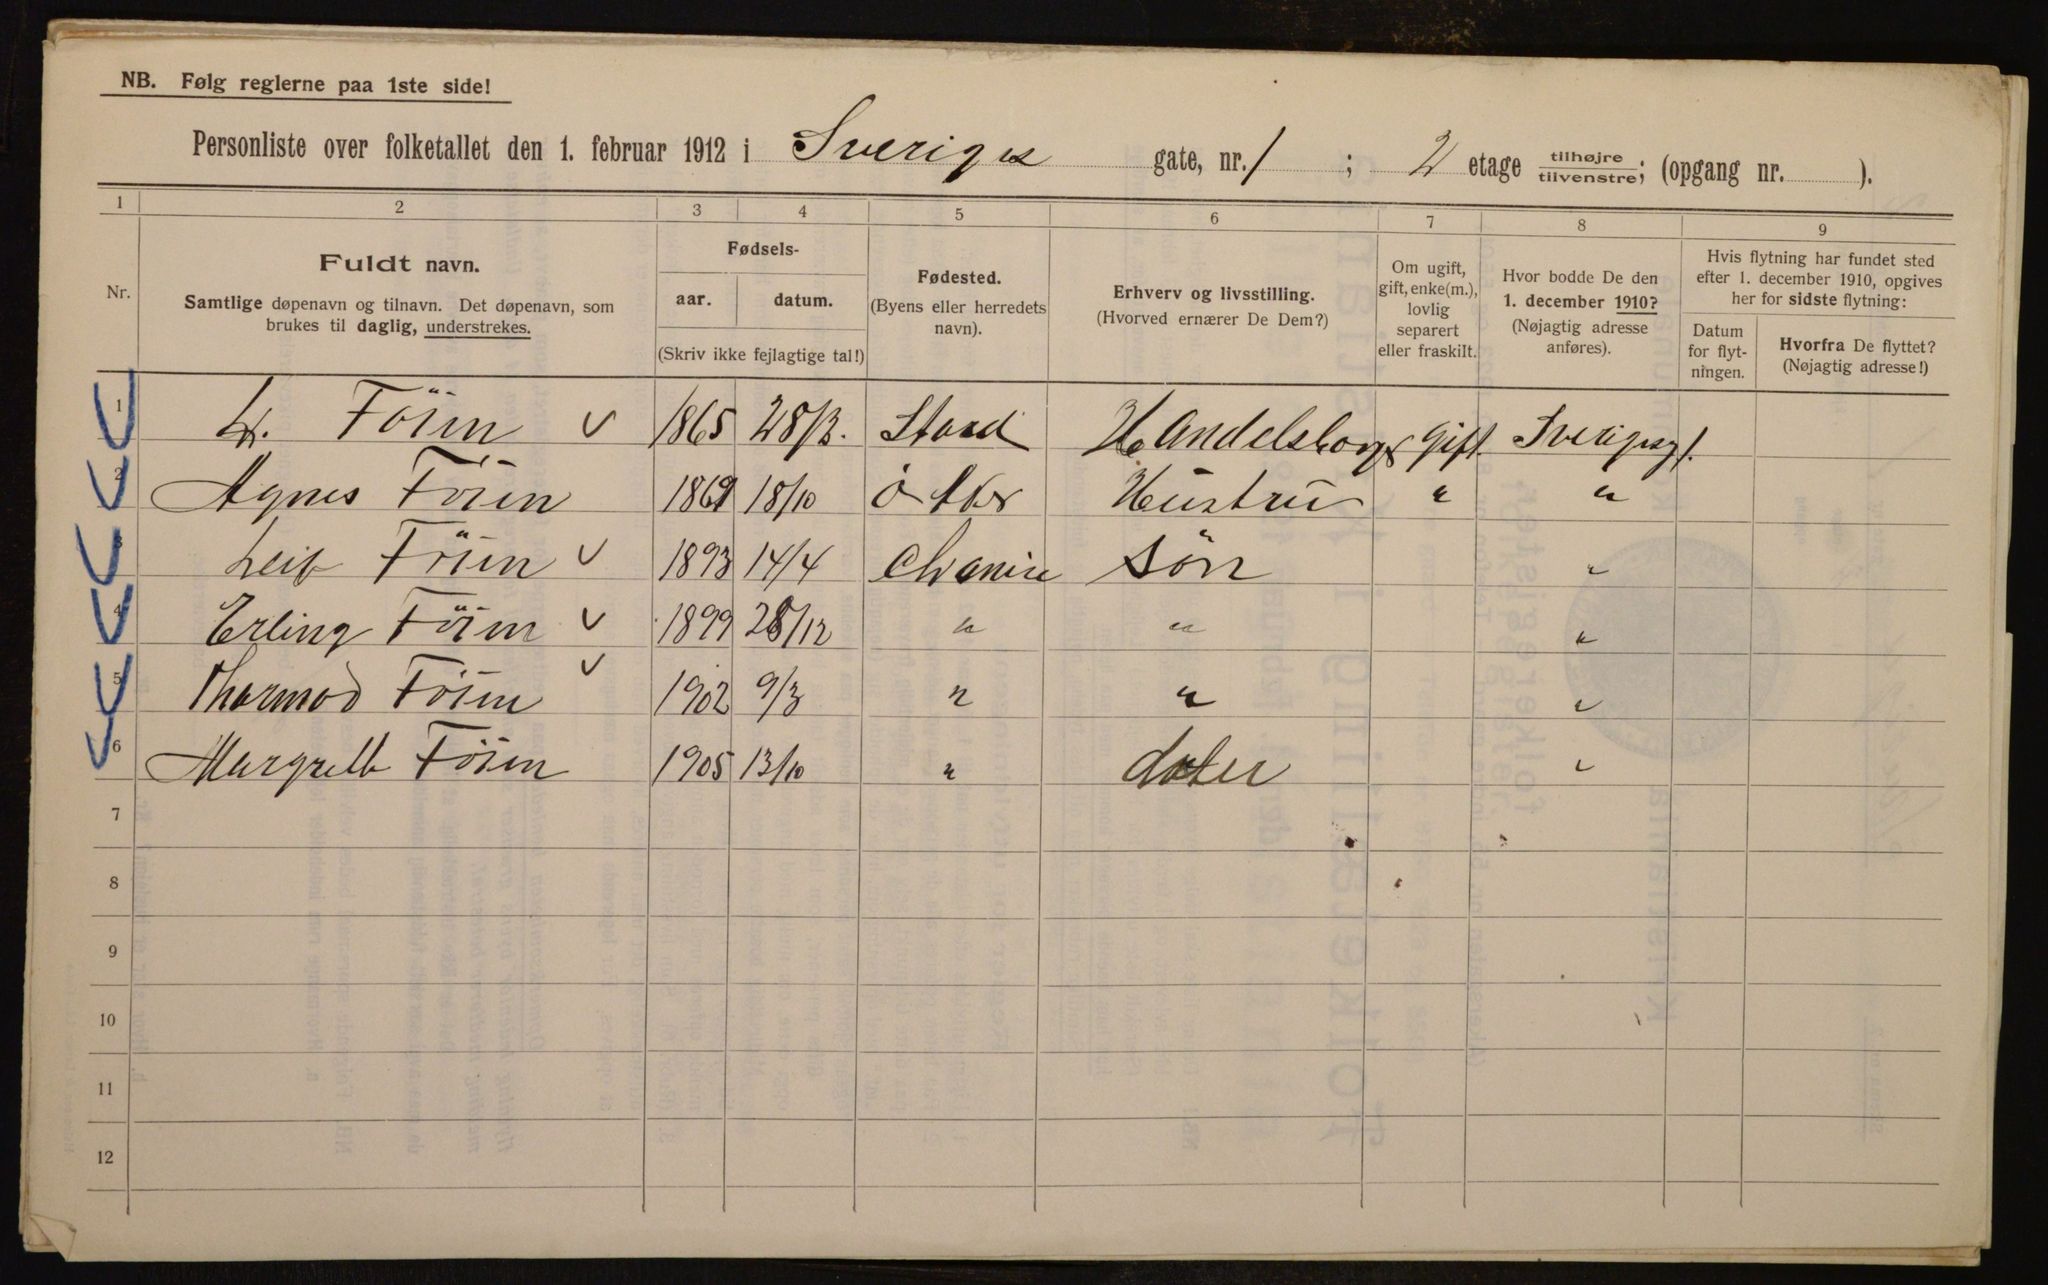 NB. Følg reglerne paa 1ste side!
Personliste over folketallet den 1. februar 1912 i Sveriges gate, nr. 1 ; 2 etage tilhøjre/tilvenstre; (opgang nr. ).
1 2 3 4 5 6 7 8 9
Nr.
Fuldt navn.
Samtlige døpenavn og tilnavn. Det døpenavn, som
brukes til daglig, understrekes.
Fødsels-
aar. datum.
(Skriv ikke fejlagtige tal!)
Fødested.
(Byens eller herredets
navn).
Erhverv og livsstilling.
(Hvorved ernærer De Dem?)
Om ugift,
gift, enke(m.),
lovlig
separert
eller fraskilt.
Hvor bodde De den
1. december 1910?
(Nøjagtig adresse
anføres).
Hvis flytning har fundet sted
efter 1. december 1910, opgives
her for sidste flytning:
Datum
for flyt-
ningen.
Hvorfra De flyttet?
(Nøjagtig adresse!)
1 Föien 1865 28/3. Handelsborg gift Sverigesg 1.
2 Agnes Föien 1869 18/10 Ö Aker Hustru " "
3 Leif Föien 1893 14/4 Chania Sön "
4 Erling Föien 1899 28/12 " " "
5 Thormod Föien 1902 9/3 " " "
6 Margreth Föien 1905 13/10 " dater "
7
8
9
10
11
12